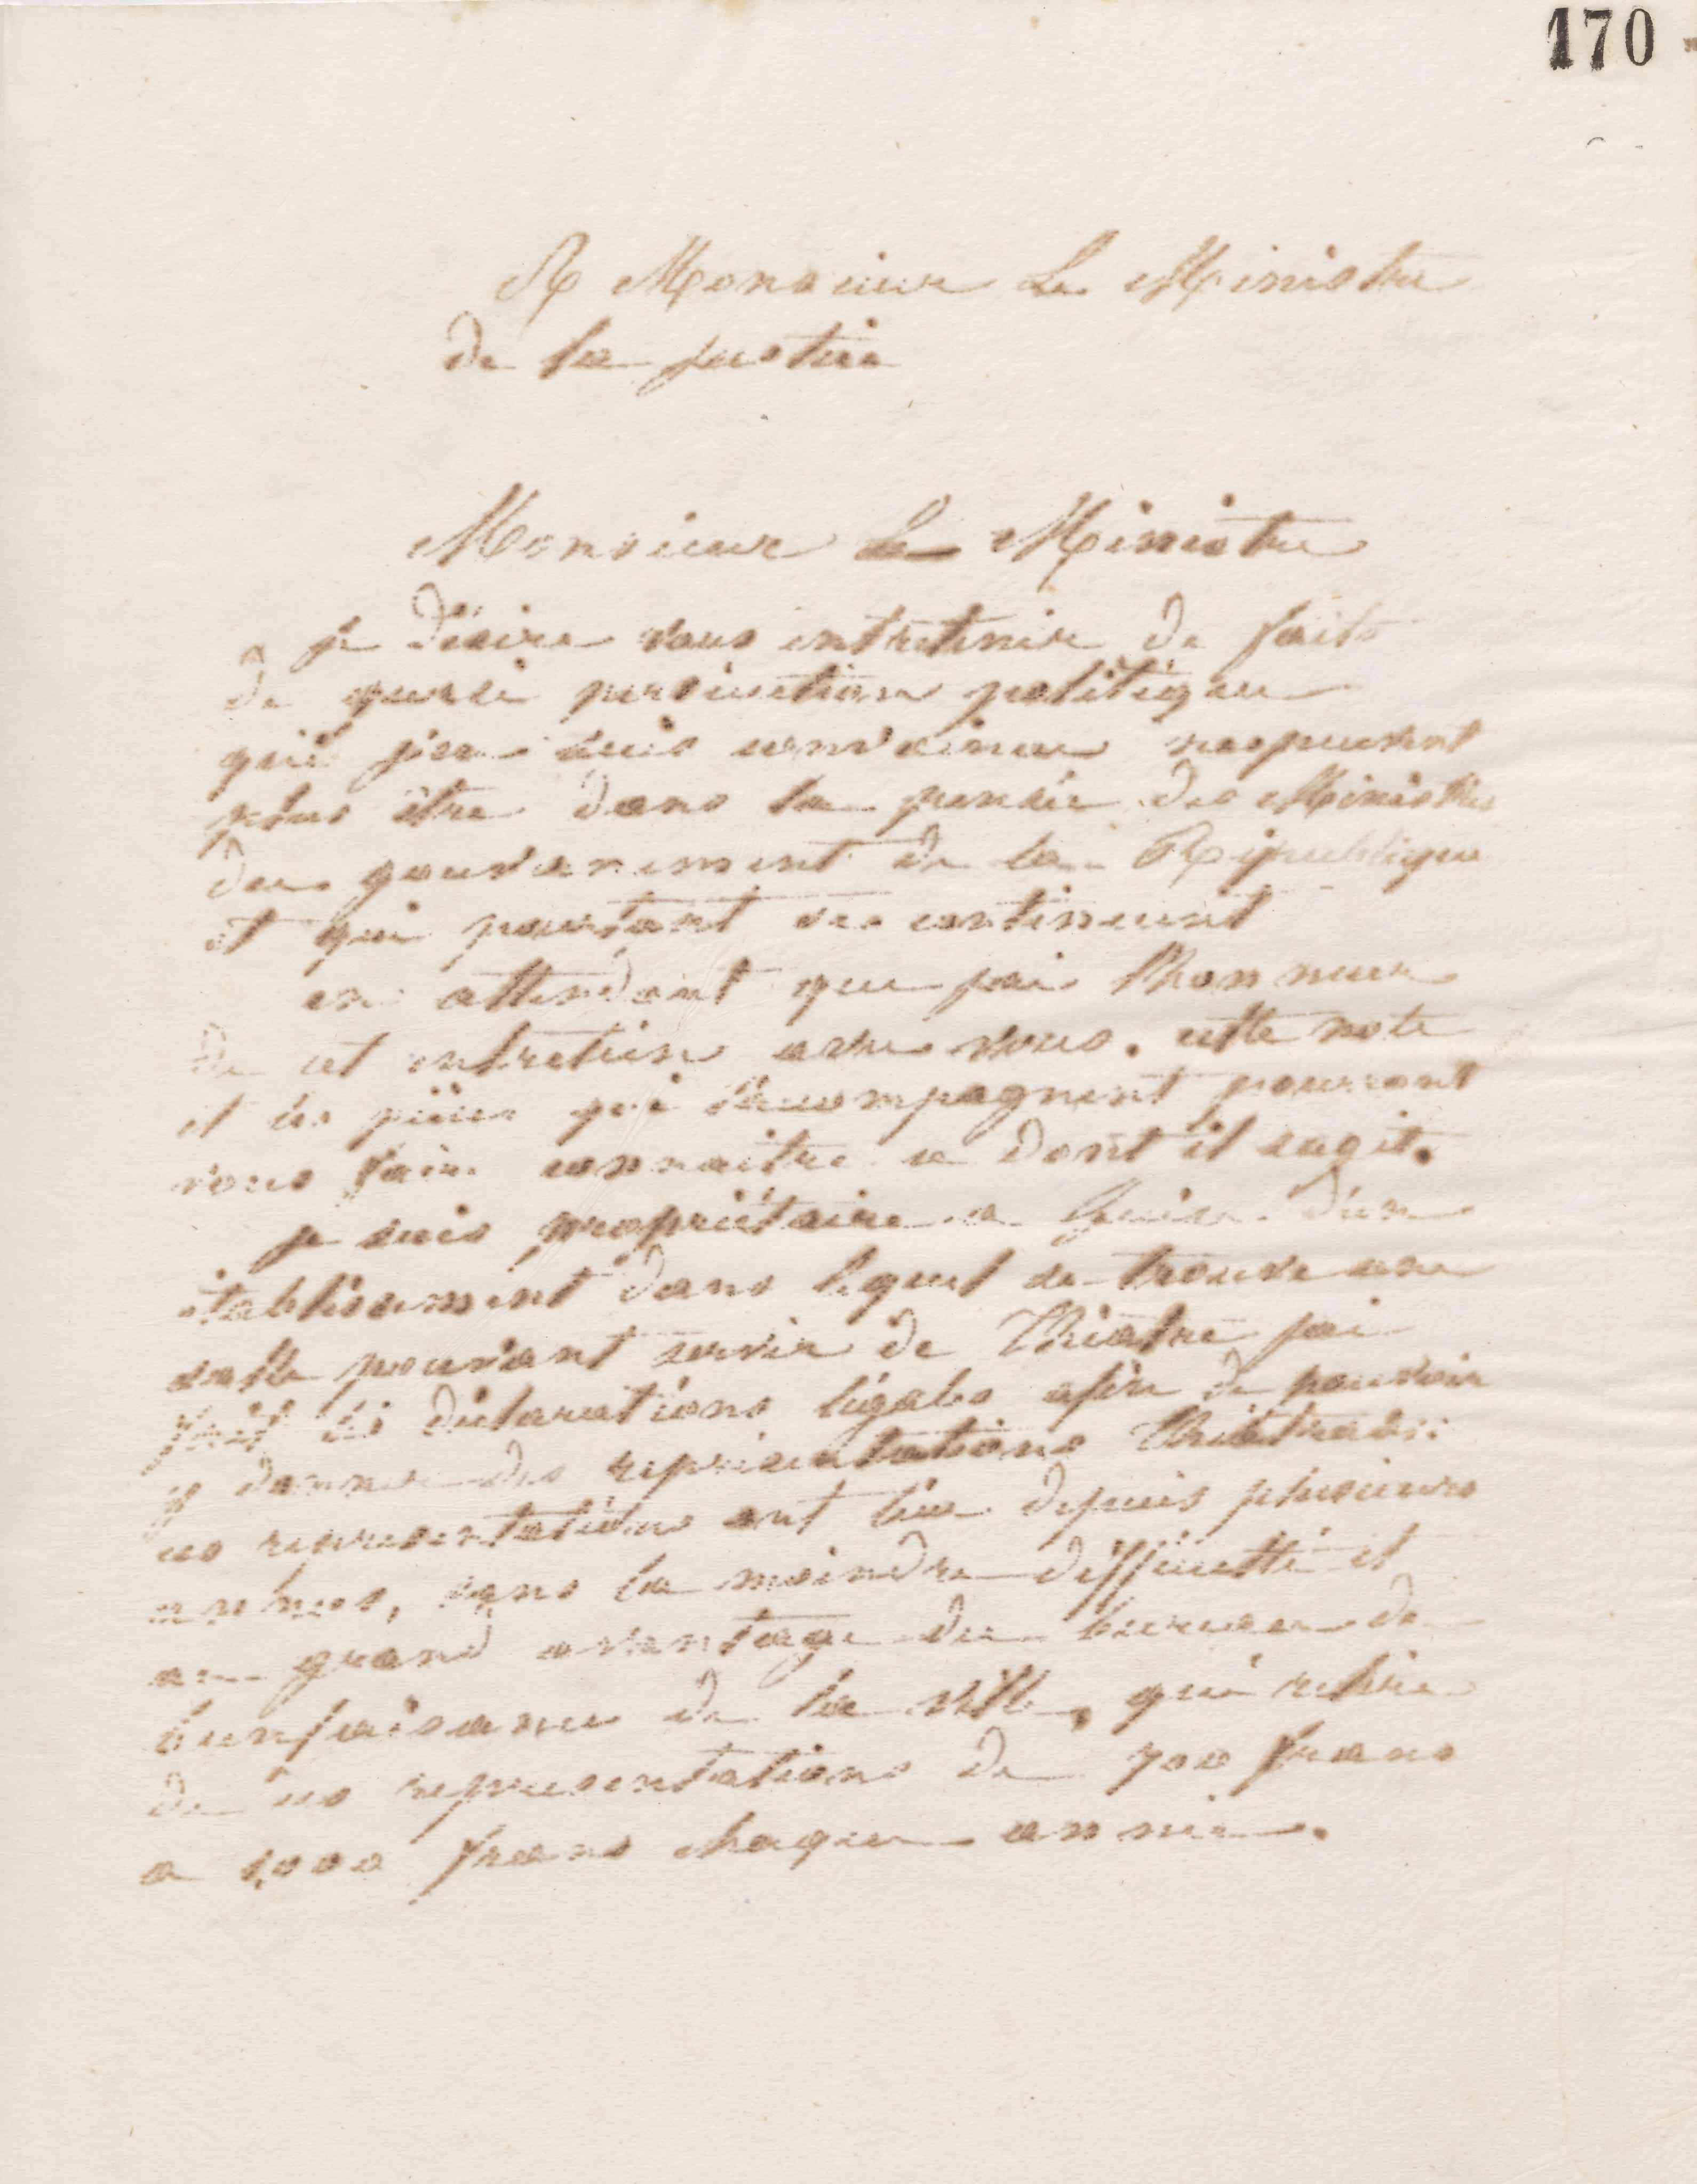 170
A Monsieur Le Ministre
de la justice
Monsieur Le Ministre
je désire vous entretenir de faits
de quasi persécution politique
qui j'en suis convaincu ne peuvent
plus être dans la pensée des Ministres
du gouvernement de la République
et qui pourtant se continuent
en attendant que jai lhonneur
de cet entretien avec vous. cette note
et les pièces qui l'accompagnent pourront
vous faire connaitre ce dont il sagit.
je suis propriétaire a Guise d'un
établissement dans lequel se trouve une
salle pouvant servir de Théatre jai
fait les déclarations légales afin de pouvoir
y donner des représentations Théatrales:
ces representations ont lieu depuis plusieurs
années, sans la moindre difficulté et
au grand avantage du bureau de
bienfaisance de la ville, qui retire
de ces representations de 700 francs
a 1,000 francs chaque année.